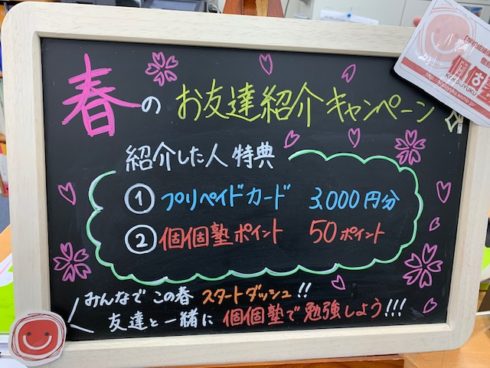 春のお友達紹介キャンペーン
紹介した人特典
① プリペイドカード 3,000円分
② 個個塾ポイント 50ポイント
みんなでこの春 スタートダッシュ!!
友達と一緒に 個個塾で勉強しよう!!!